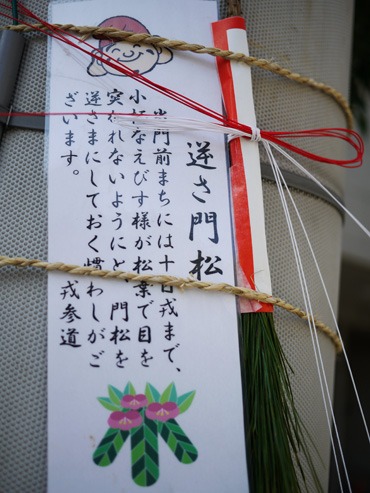 逆さ門松
当門前まちには十日戎まで、
小柄なえびす様が松葉で目を
突かれないようにと、門松を
逆さまにしておく慣わしがご
ざいます。
戎参道